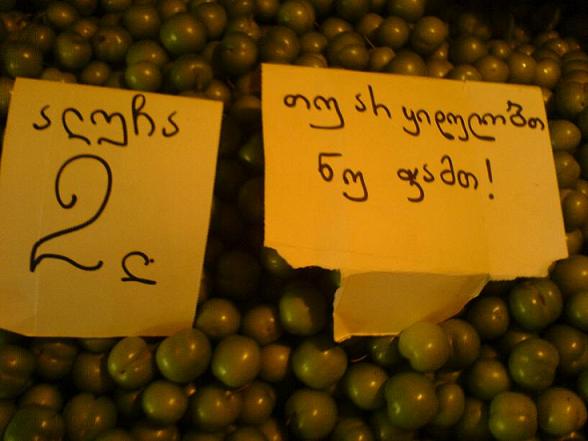 ალუჩა
2 ლ
თუ არ ყიდულობთ
ნუ ჭამთ!